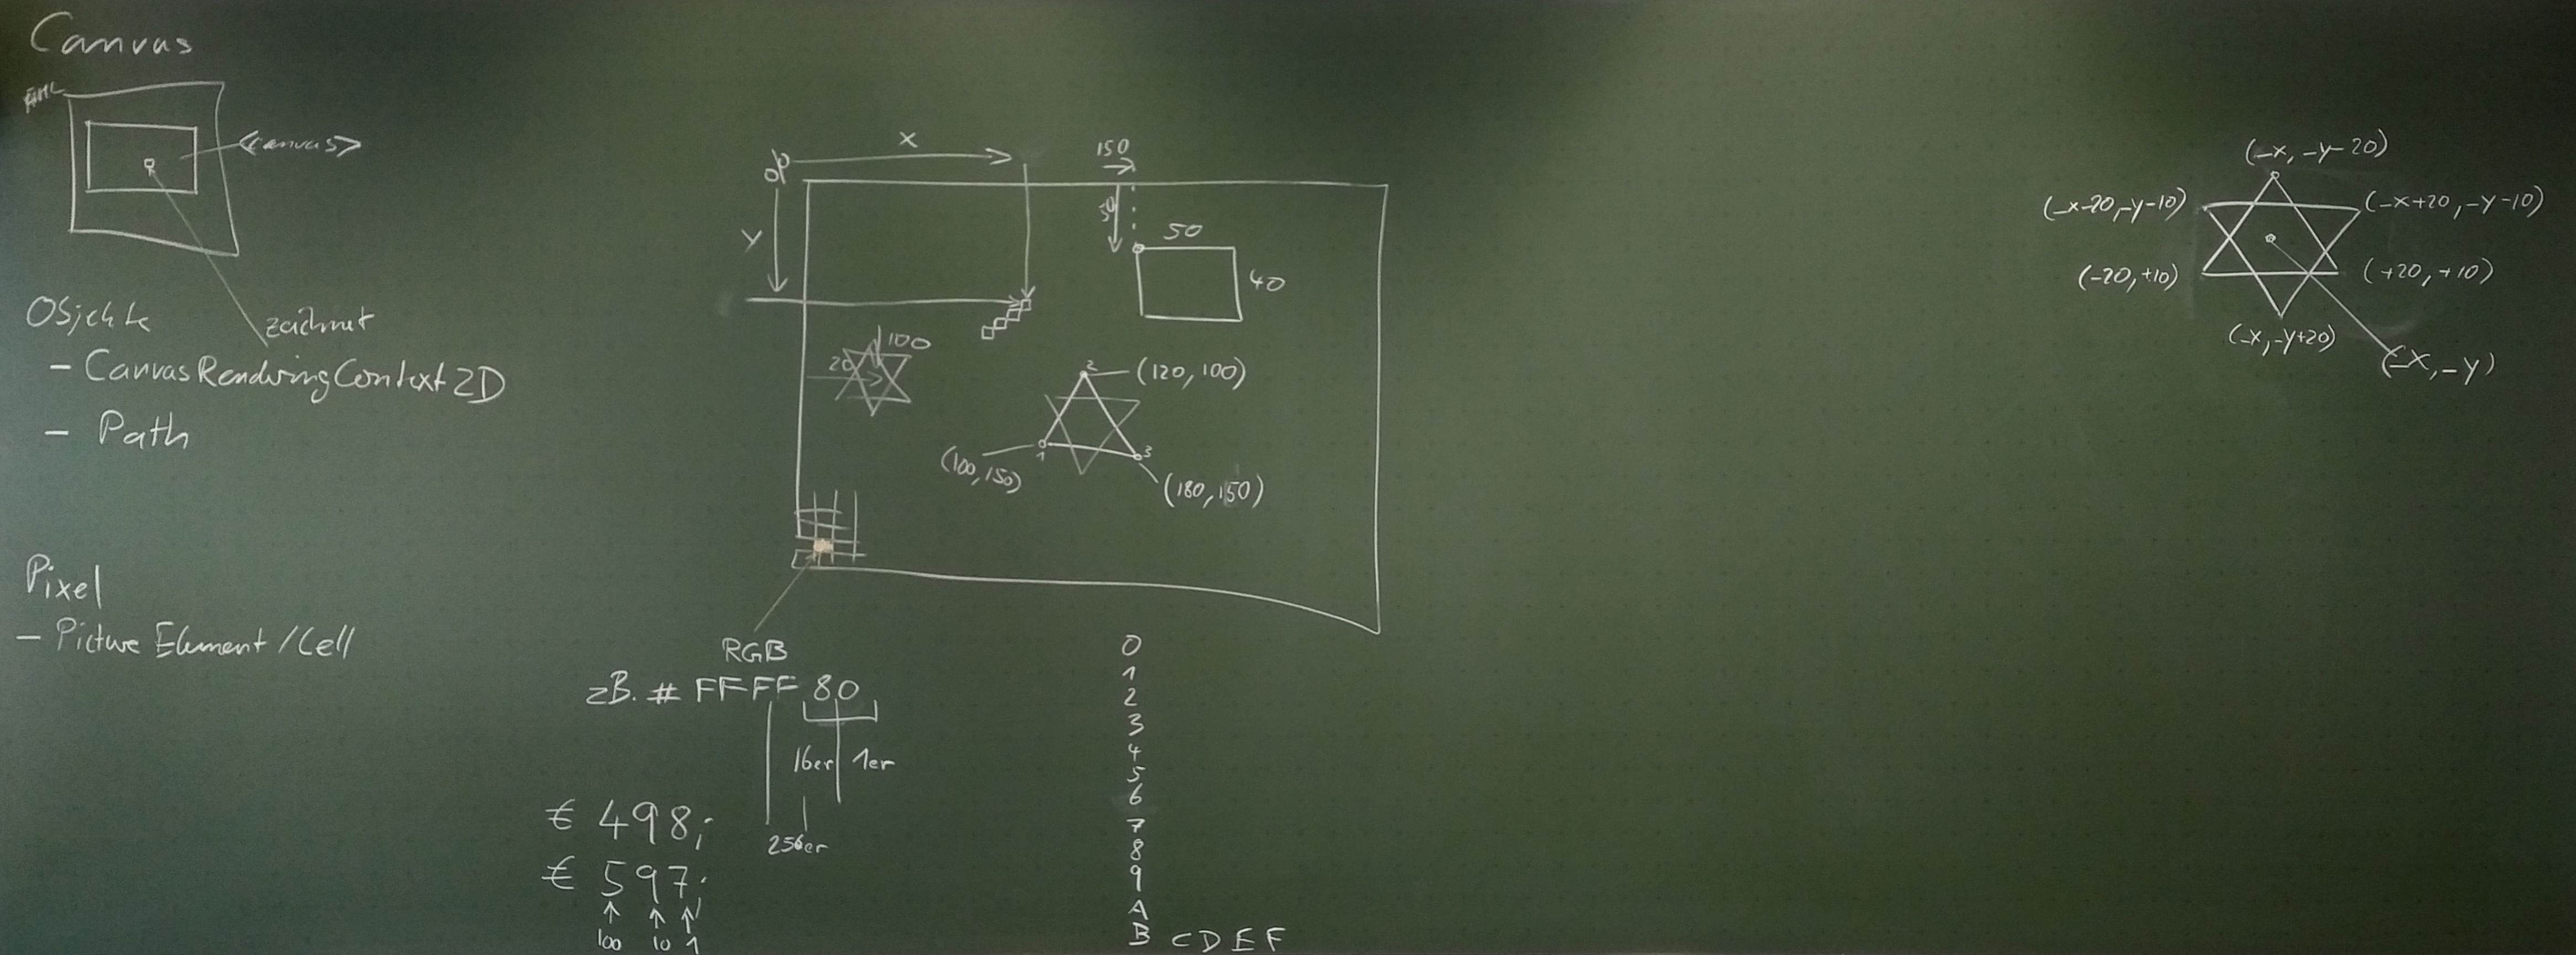 Canvas
HTML
<canvas>
Objekte
zeichnet
- CanvasRenderingContext2D
- Path
Pixel
- Picture Element/Cell
x
y
150
50
50
40
100
20
2
(120, 100)
1
(100,150)
3
(180,150)
RGB
zB. # FFFF 80
16er
1er
256er
€ 498,-
€ 597,-
100 10 1
0
1
2
3
4
5
6
7
8
9
A
B C D E F
(-x, -y-20)
(-x-20,-y-10)
(-x+20,-y-10)
(-20,+10)
(+20,+10)
(-x,-y+20)
(-x,-y)